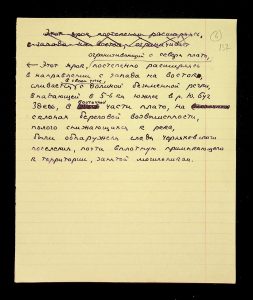 Этот яр, постепенно расширяясь,
с запада на восток, ограничивает
ограничивающий с севера плато,
Этот яр, постепенно расширяясь
в направлении с запада на восток,
сливается с долиной безымянной речки,
впадающей в 5-6 км южнее в р. Ю. Буг
Здесь, в восточной части плато, на
склонах береговой возвышенности,
полого снижающихся к реке,
были обнаружены следы черняховского
поселения, почти вплотную примыкающего
к территории, занятой могильником.